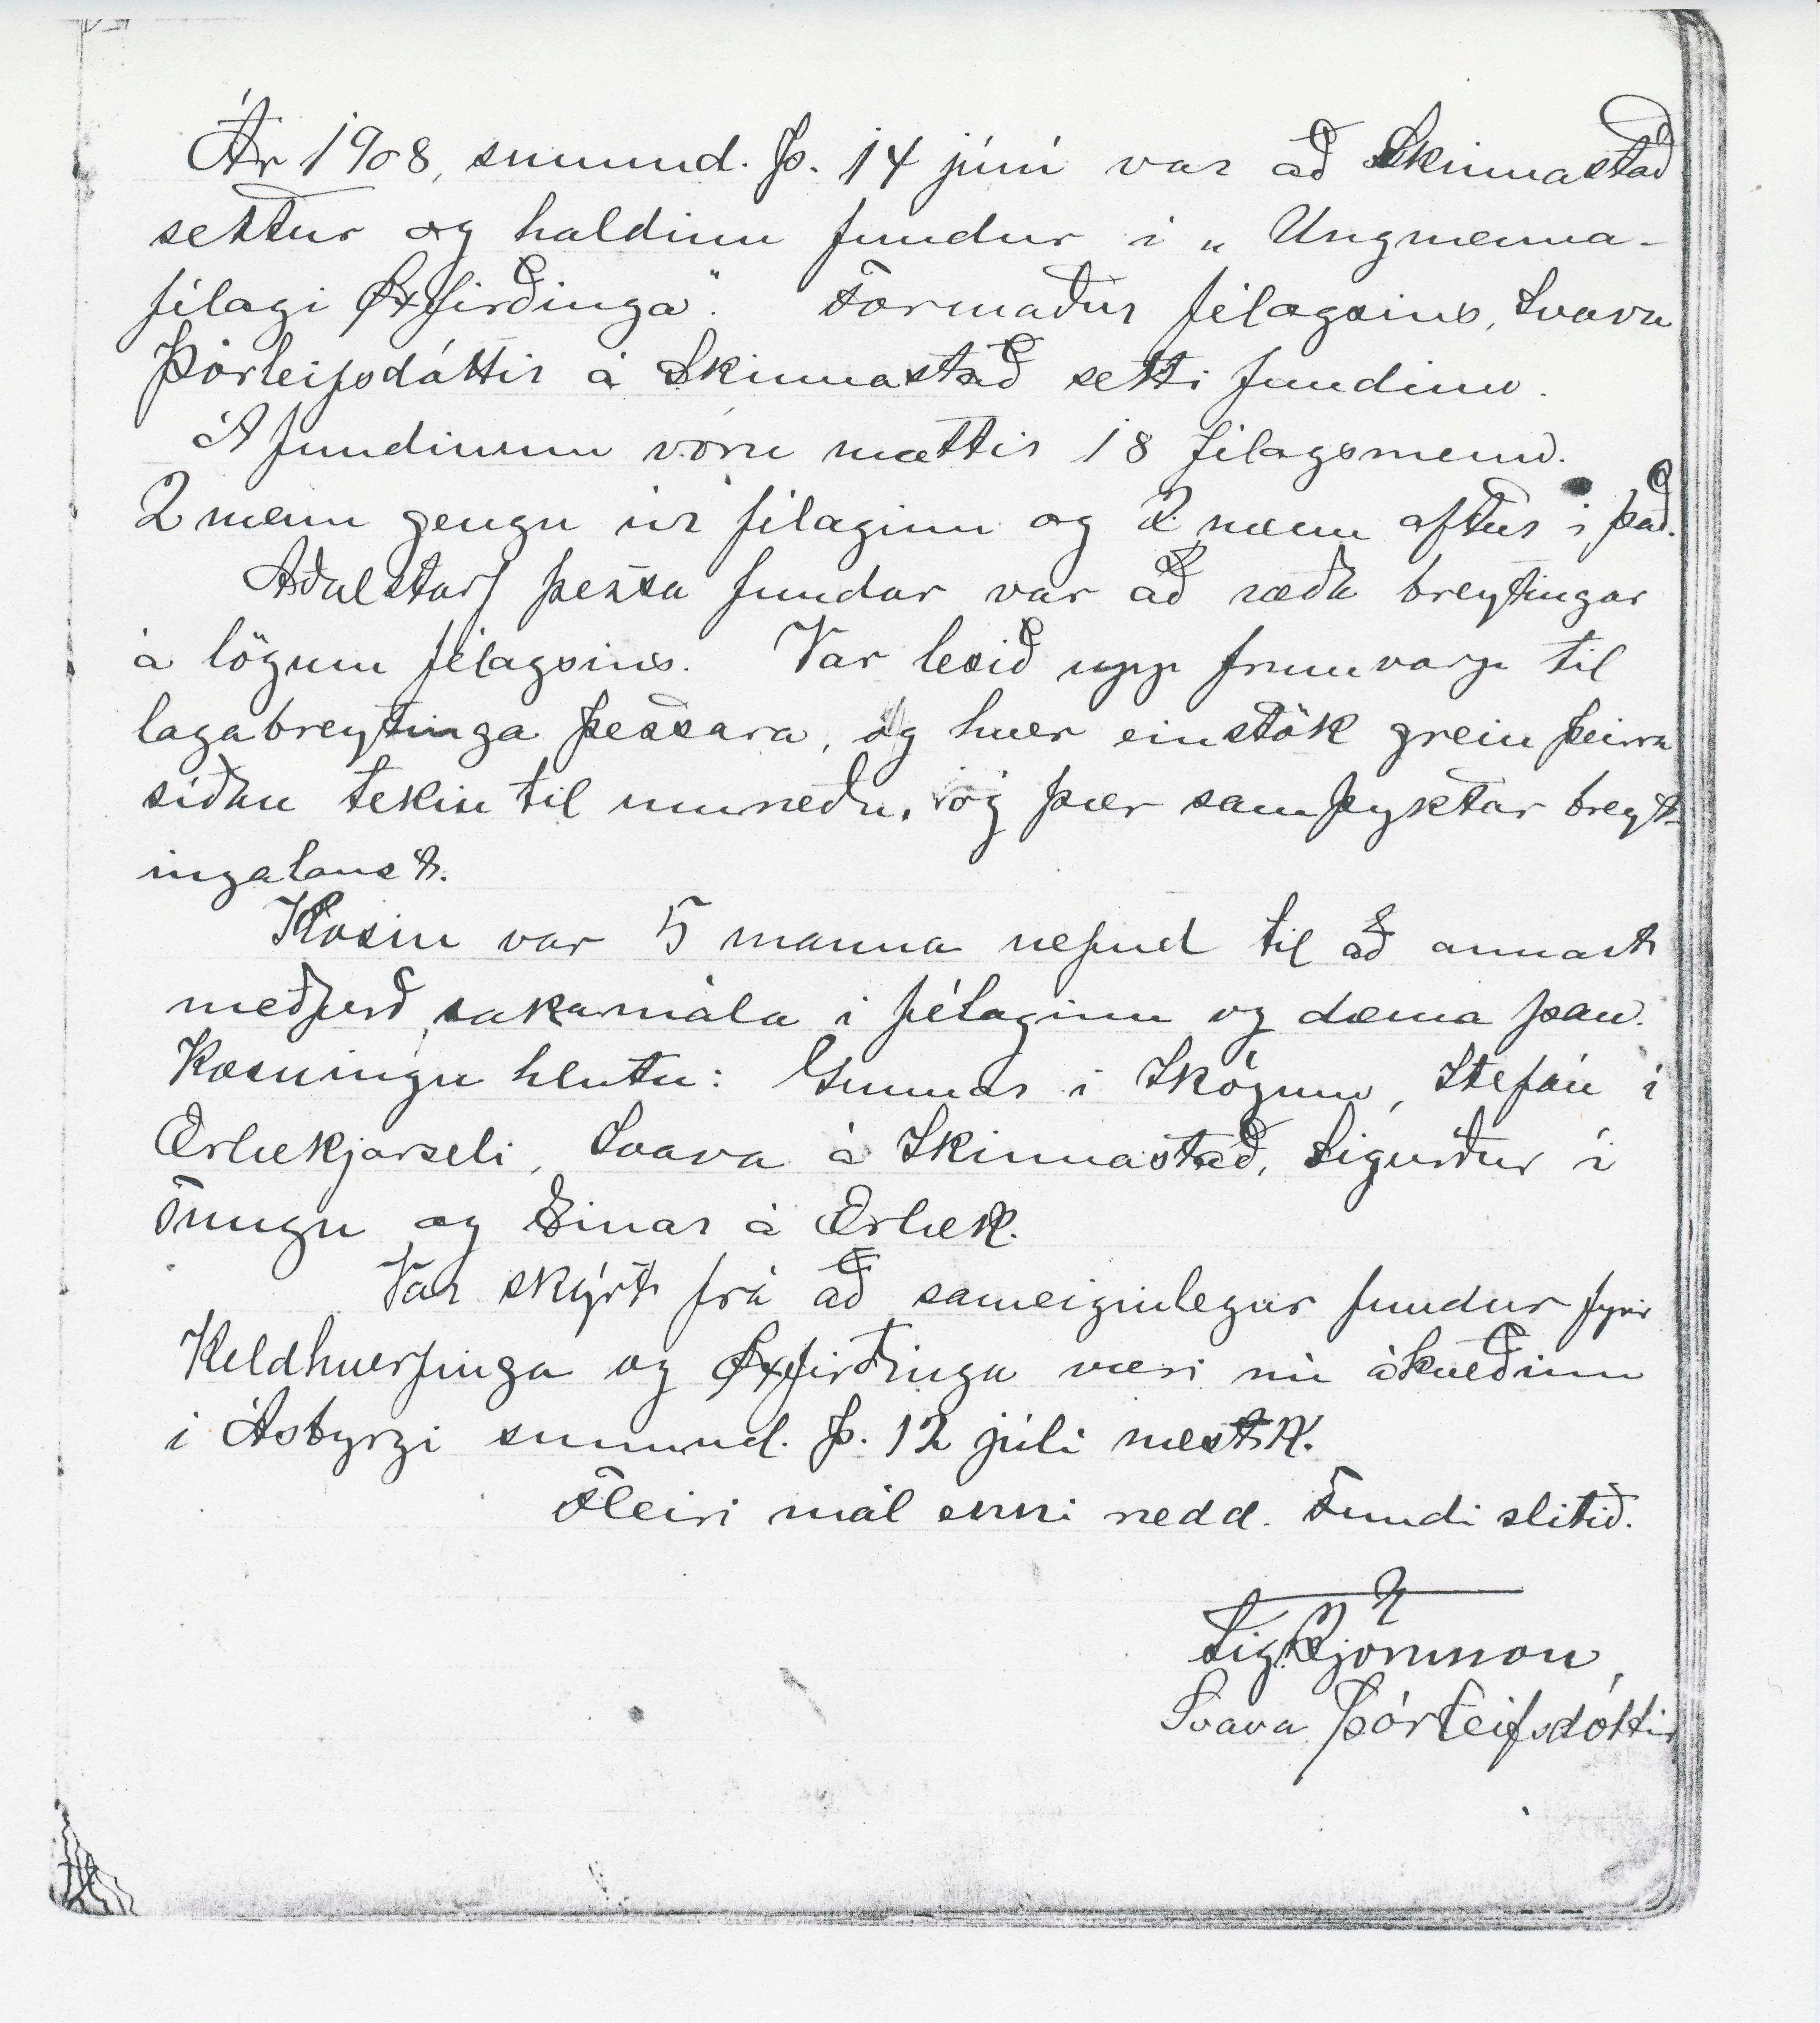 Ár 1908, sunnud. þ. 14 júní var að Skinnastað
settur og haldinn fundur í „Ungmenna-
félagi Øxfirðinga". Formaður félagsins, Svava
Þórleifsdóttir á Skinnastað setti fundinn.
Á fundinum vóru mættir 18 félagsmenn.
2 menn gengu úr félaginu og 2 menn aftur í það.
Aðalstarf þessa fundar var að ræða breytingar
á lögum félagsins. Var lesið upp frumvarp til
lagabreytinga þessara, og hver einstök grein þeirra
síðan tekin til umræðu, og þær samþyktar breyt-
ingalaust.
Kosin var 5 manna nefnd til að annast
meðferð sakamála í félaginu og dæma þau.
Kosningu hlutu: Gunnar í Skógum, Stefán í
Ærlækjarseli, Svava á Skinnastað, Sigurður í
Tungu og Einar á Ærlæk.
Var skýrt frá að sameiginlegur fundur fyrir
Keldhverfinga og Øxfirðinga væri nú ákveðinn
í Ásbyrgi sunnud. þ. 12 júlí næstk.
Fleiri mál enni rædd. Fundi slitið.
Sig. Björnsson,
Svava Þórleifsdóttir